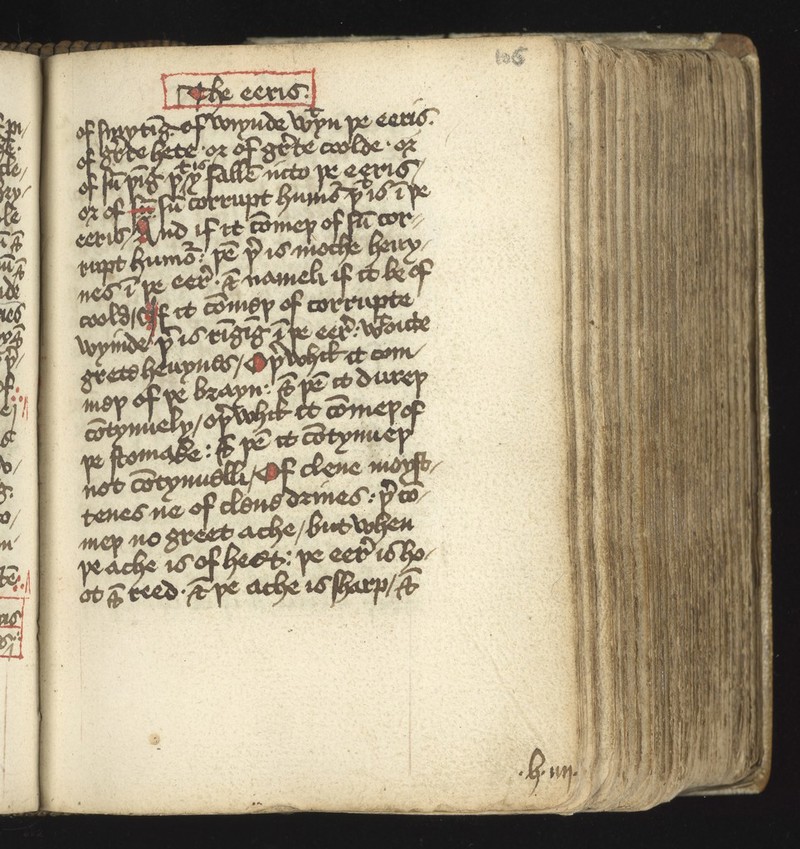 106
The eeris.
of smytīg of wynde wͭyn þe eeris.
of gͬte hete · or of gͬte coolde · or
of sū þīg þͭ is fallē in to þe eeris /
or of sū corrupt humͬs þͭ is ī þe
eeris / And if it cōmeþ of sū cor-
rupt humͬs : þē þͬ is moche heuy-
nes ī þe eerͬ · & nameli if it be of
coold / If it cōmeþ of corrupte
wynde · þͬ is rīgīg ī þe eerͬ : wͭoute
grete heuynes / Oþͬ whil it com-
meþ of þe brayn : & þē it dureþ
cōtynuely / oþͬ whil it cōmeþ of
þe stomake : & þē it cōtynueþ
not cōtynuelli / Of clene moyst-
tenes ne of clene drines : þͬ cō-
meþ no greet ache / but when
þe ache is of heet : þe eerͬ is ho-
ot & reed · & þe ache is sharp / &
.h.iiij.